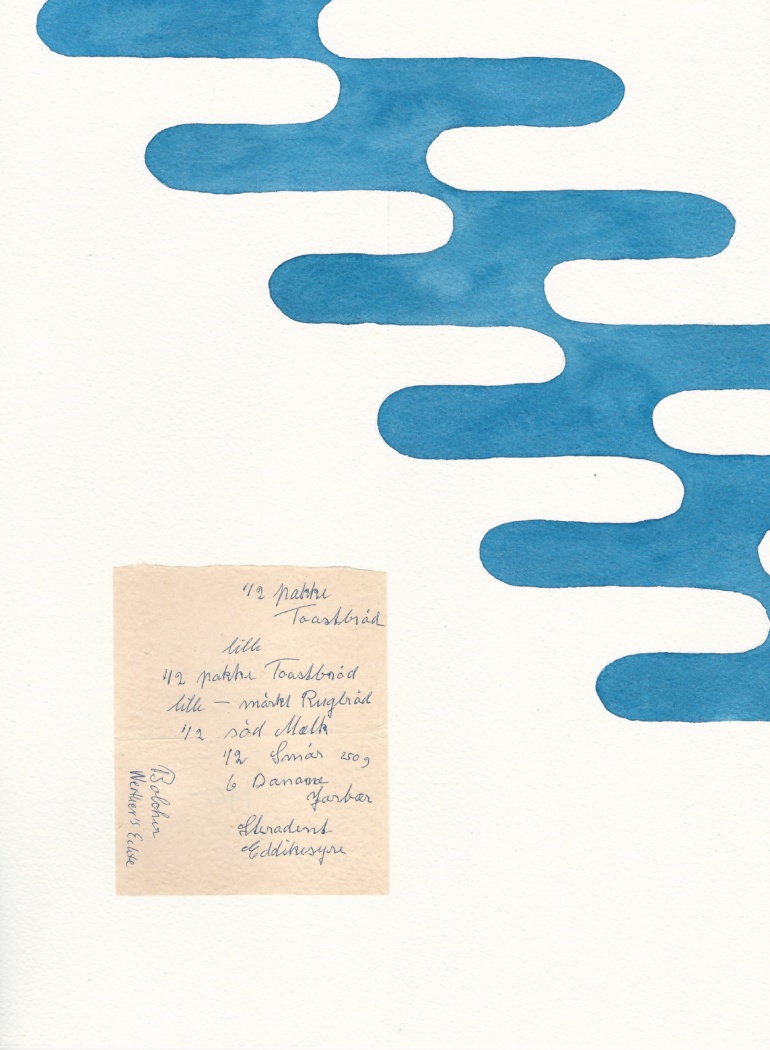 1/2 pakke
Toastbrød
lille
1/2 pakke Toastbrød
lille — mørkt Rugbrød
1/2 sød Mælk
1/2 Smør 250 g
6 Danone
Jarbær
Steradent
Eddikesyre
Bolcher
Werther's Echte